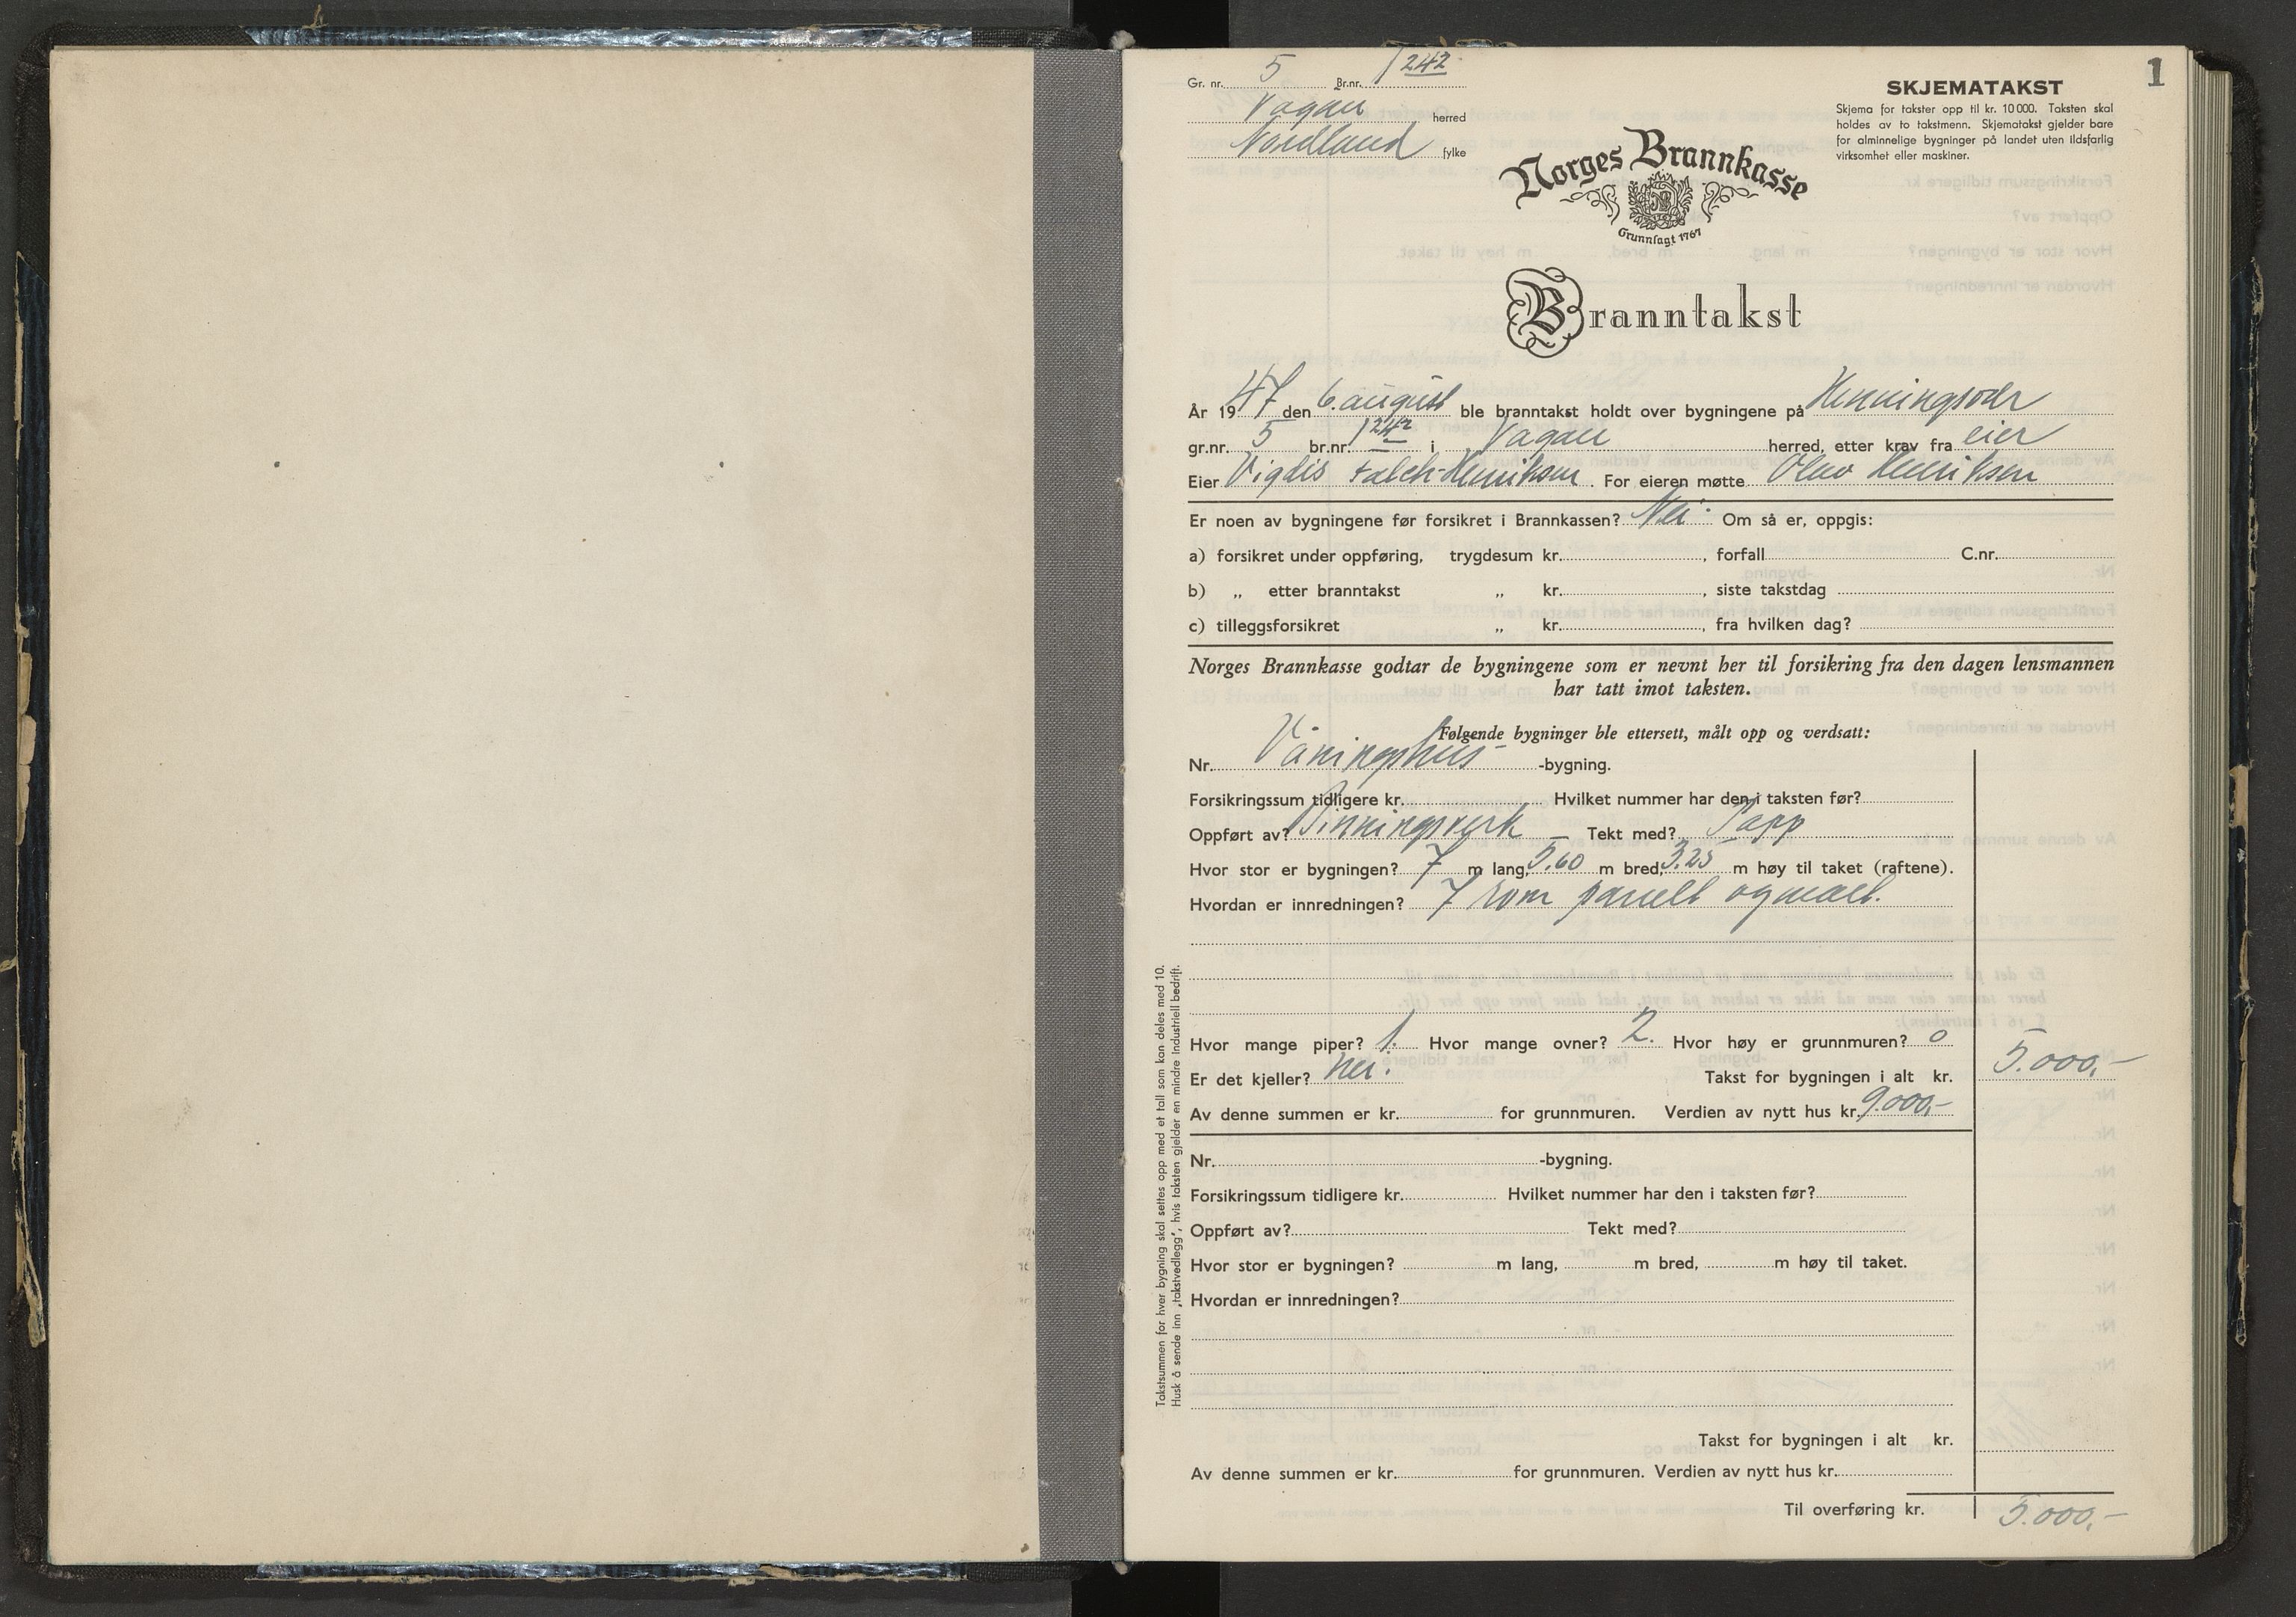 1
Gr. nr. 5 Br.nr. 1 242
Vågan herred
Nordland fylke
SKJEMATAKST
Skjema for takster opp til kr. 10 000. Taksten skal
holdes av to takstmenn. Skjematakst gjelder bare
for alminnelige bygninger på landet uten ildsfarlig
virksomhet eller maskiner.
Norges Brannkasse
Grunnlagt 1767
Branntakst
År 1947 den 6. august ble branntakst holdt over bygningene på Henningsvær
gr.nr. 5 br.nr. 1 242 i Vågan herred, etter krav fra eier
Eier Vigdis Falch-Henriksen. For eieren møtte Olav Henriksen
Er noen av bygningene før forsikret i Brannkassen? Nei. Om så er, oppgis:
a) forsikret under oppføring, trygdesum kr. , forfall C.nr.
b) „ etter branntakst „ kr. , siste takstdag
c) tilleggsforsikret „ kr. , fra hvilken dag?
Norges Brannkasse godtar de bygningene som er nevnt her til forsikring fra den dagen lensmannen
har tatt imot taksten.
Følgende bygninger ble ettersett, målt opp og verdsatt:
Nr. Våningshus -bygning.
Forsikringssum tidligere kr. Hvilket nummer har den i taksten før?
Oppført av? Binningsverk Tekt med? Papp
Hvor stor er bygningen? 7 m lang, 5,60 m bred, 3,25 m høy til taket (raftene).
Hvordan er innredningen? 7 rom panelt og malt.
Hvor mange piper? 1. Hvor mange ovner? 2. Hvor høy er grunnmuren? 0
Er det kjeller? Nei. Takst for bygningen i alt kr. 5.000,-
Av denne summen er kr. for grunnmuren. Verdien av nytt hus kr. 9.000,-
Nr. -bygning.
Forsikringssum tidligere kr. Hvilket nummer har den i taksten før?
Oppført av? Tekt med?
Hvor stor er bygningen? m lang, m bred, m høy til taket.
Hvordan er innredningen?
Takst for bygningen i alt kr.
Av denne summen er kr. for grunnmuren. Verdien av nytt hus kr.
Til overføring kr. 5.000,-
Takstsummen for hver bygning skal settes opp med et tall som kan deles med 10.
Husk å sende inn „takstvedlegg", hvis taksten gjelder en mindre industriell bedrift.